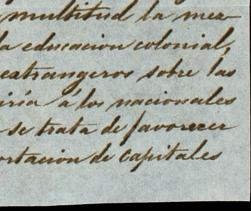 multitud la mez
la educacion colonial,
extrangeros sobre las
iría á los nacionales
se trata de favorecer
ortacion de capitales